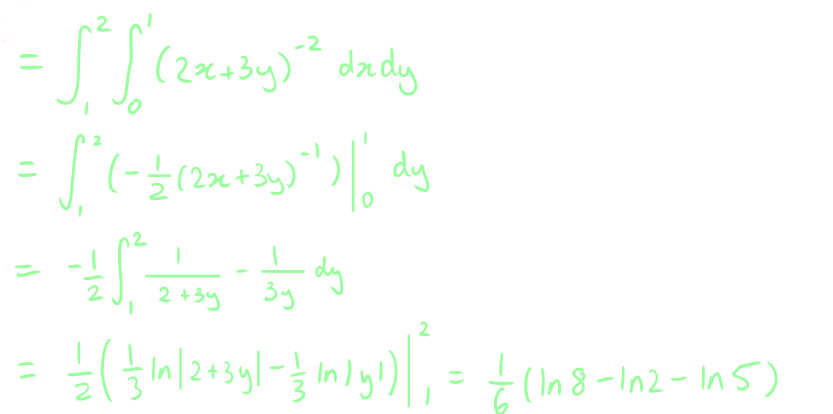 = ∫₁² ∫₀¹ (2x+3y)⁻² dxdy
= ∫₁² (-1/2 (2x+3y)⁻¹)|₀¹ dy
= -1/2 ∫₁² 1/(2+3y) - 1/(3y) dy
= 1/2 (1/3 ln|2+3y| - 1/3 ln|y|)|₁² = 1/6 (ln8-ln2-ln5)